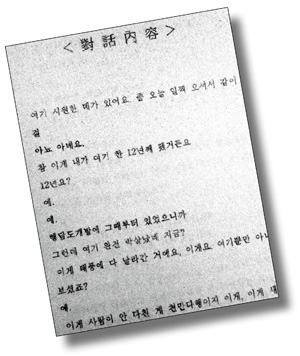 <對話內容>
여기 시원한 데가 있어요. 좀 오늘 일찍 오셔서 같이
걸
아뇨 아네요.
참 이게 내가 여기 한 12년째 됐거든요
12년요?
예.
예.
행담도개발에 그때부터 있었으니까
그런데 여기 완전 박살났네 지금?
이게 태풍에 다 날라간 거예요, 이게요. 여기뿐만 아니
보셨죠?
예.
이게 사람이 안 다친 게 천만다행이지 이게, 이게 새